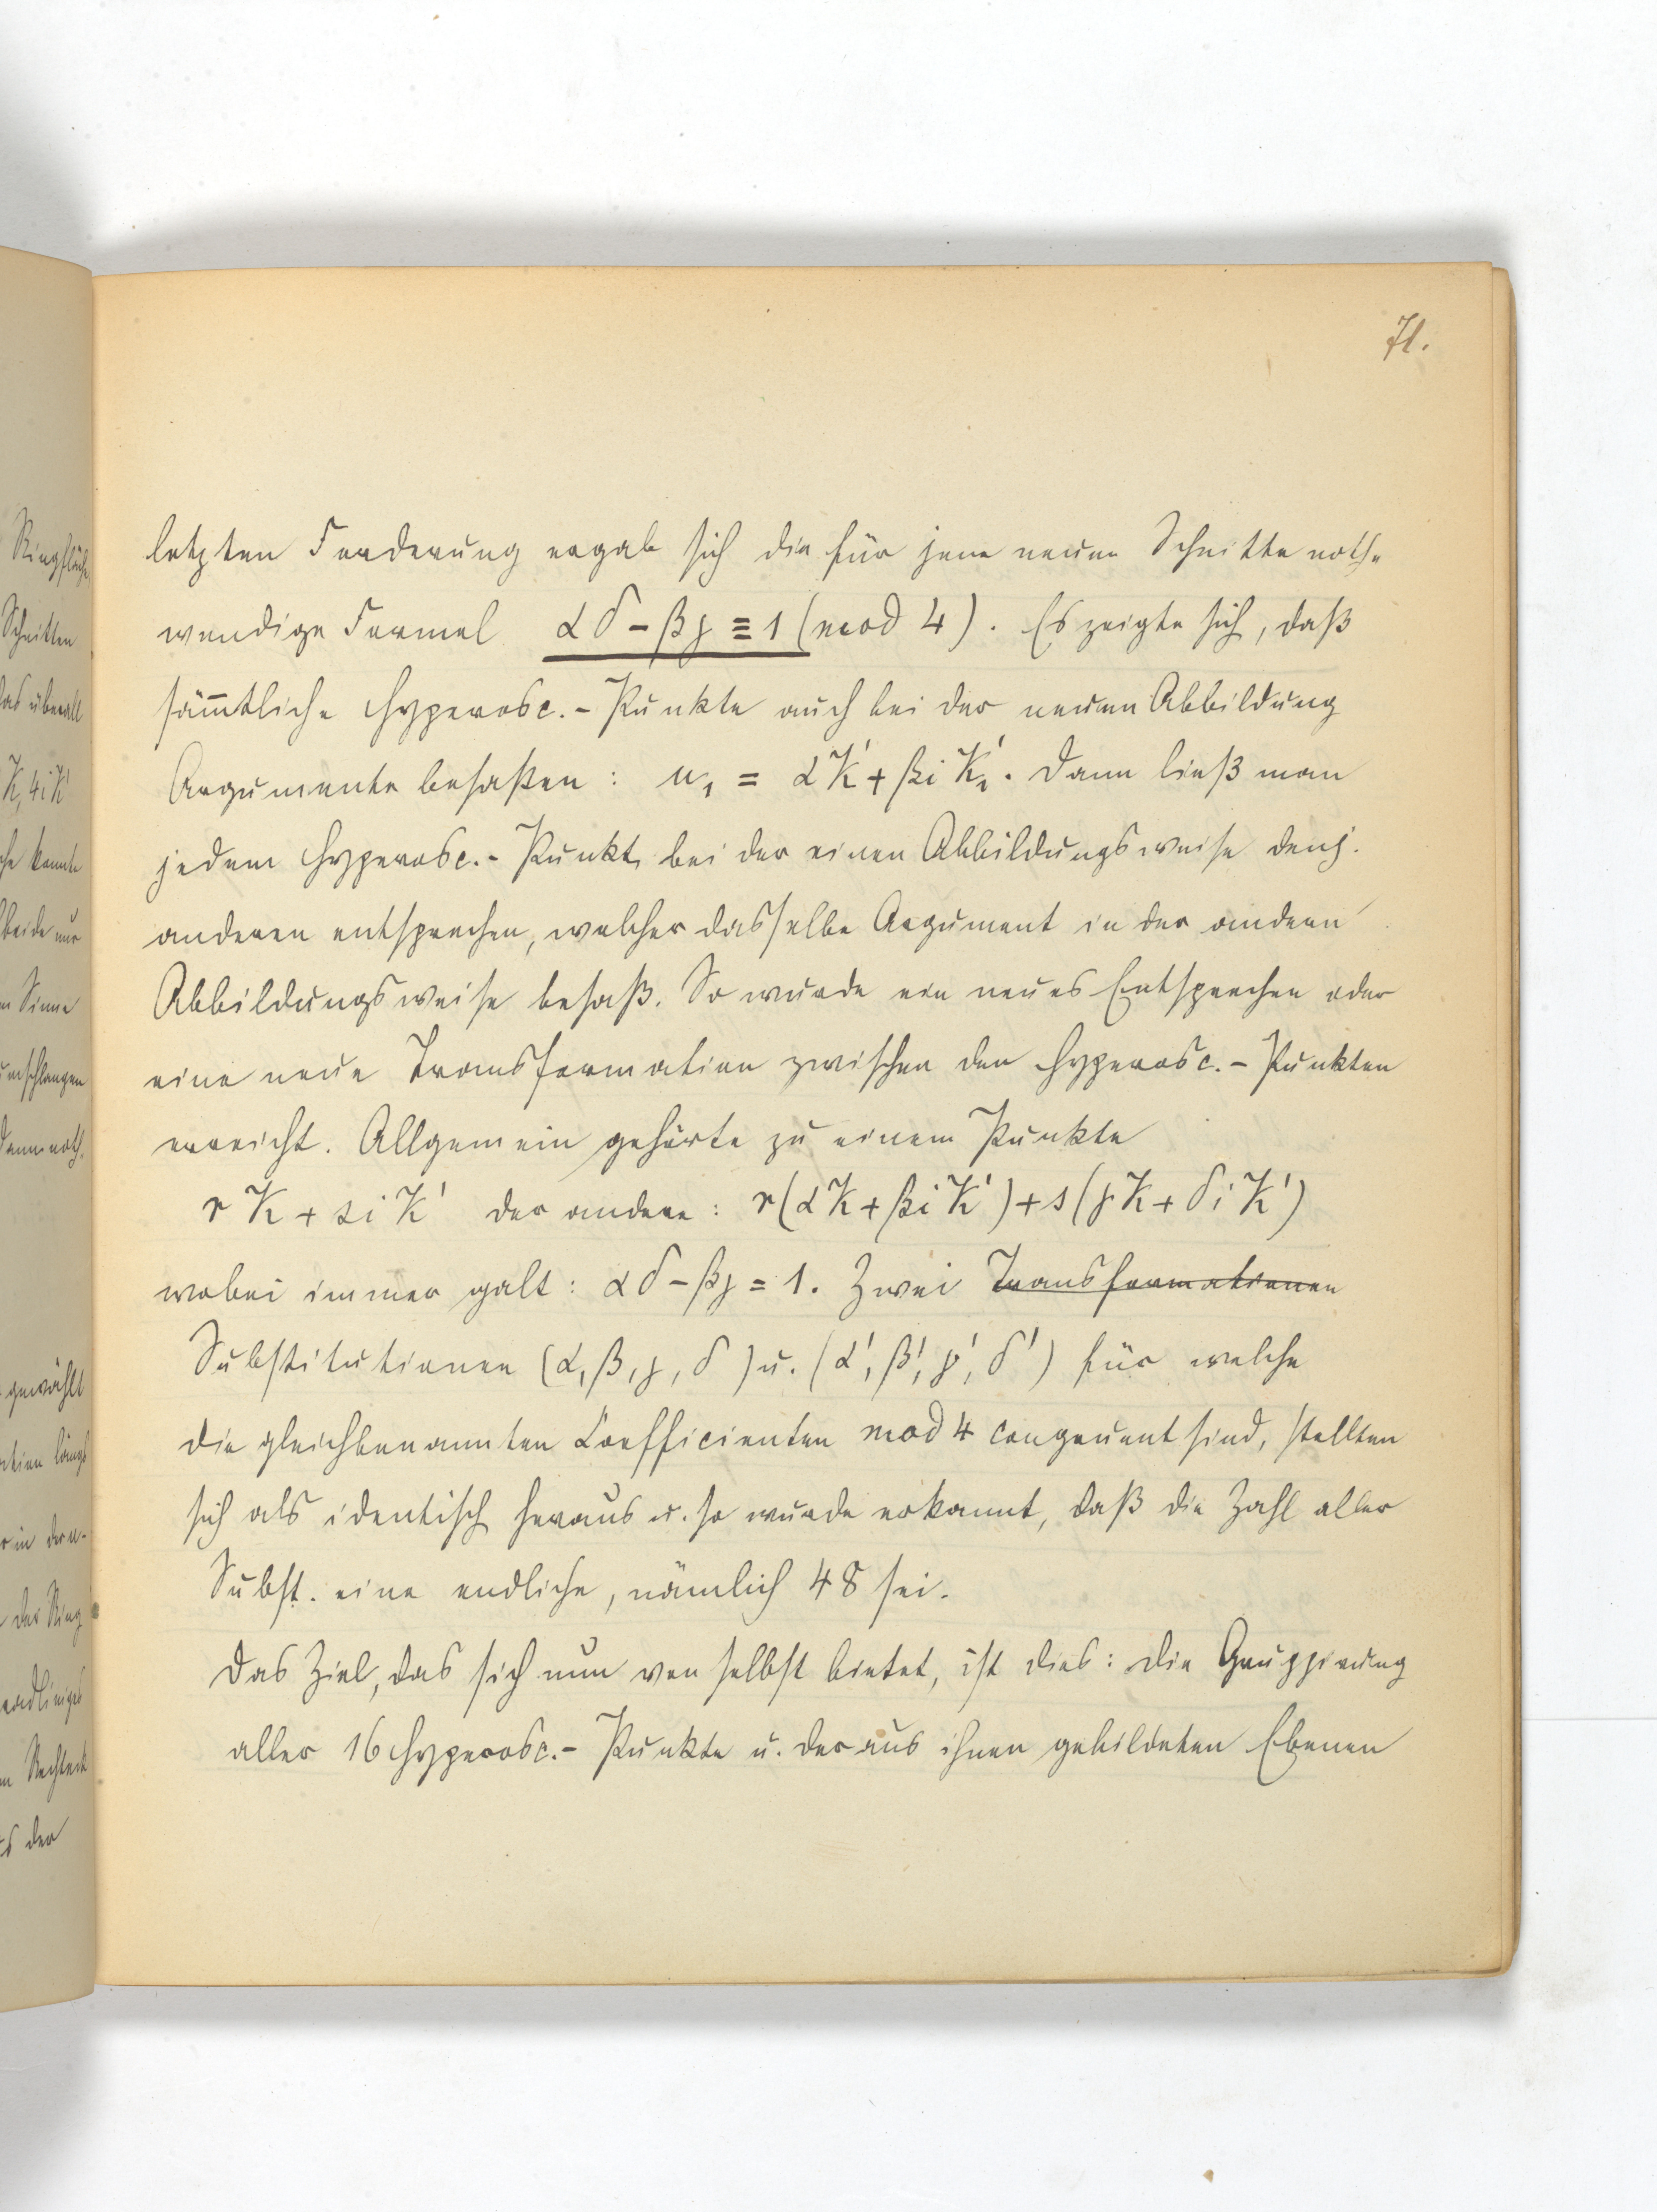 71.
letzten Forderung ergab sich die für jene neuen Schnitte noth-
wendige Formel αδ - βγ ≡ 1 (mod 4). Es zeigte sich, daß
säm̅tliche Hyperosc.- Punkte auch bei der neuen Abbildung
Argumente besaßen: u₁ = αK' + βiK'₂. Dann ließ man
jedem Hyperosc.- Punkt bei der einen Abbildungsweise denj.
anderen entsprechen, welcher dasselbe Argument in der andern
Abbildungsweise besaß. So wurde ein neues Entsprechen oder
eine neue Transformation zwischen den Hyperosc.- Punkten
erreicht. Allgemein gehörte zu einem Punkte
rK + siK' der andere: r(αK + βiK') + s(γK + δiK')
wobei immer galt: αδ - βγ = 1. Zwei Transformationen
Substitutionen (α, β, γ, δ) u. (α', β', γ', δ') für welche
die gleichbenannten Coefficienten mod 4 congruent sind, stellten
sich als identisch heraus u. so wurde erkannt, daß die Zahl aller
Subst. eine endliche, nämlich 48 sei.
Das Ziel, das sich nun von selbst bietet, ist dies: Die Gruppirung
aller 16 Hyperosc.- Punkte u. der aus ihnen gebildeten Ebenen
Ringfläche
Schnitten
das überall
K, 4iK'
konnte
beide nur
Sinne
umschlangen
Dann noth.
gewählt
längs
der Ring
Rechteck
der